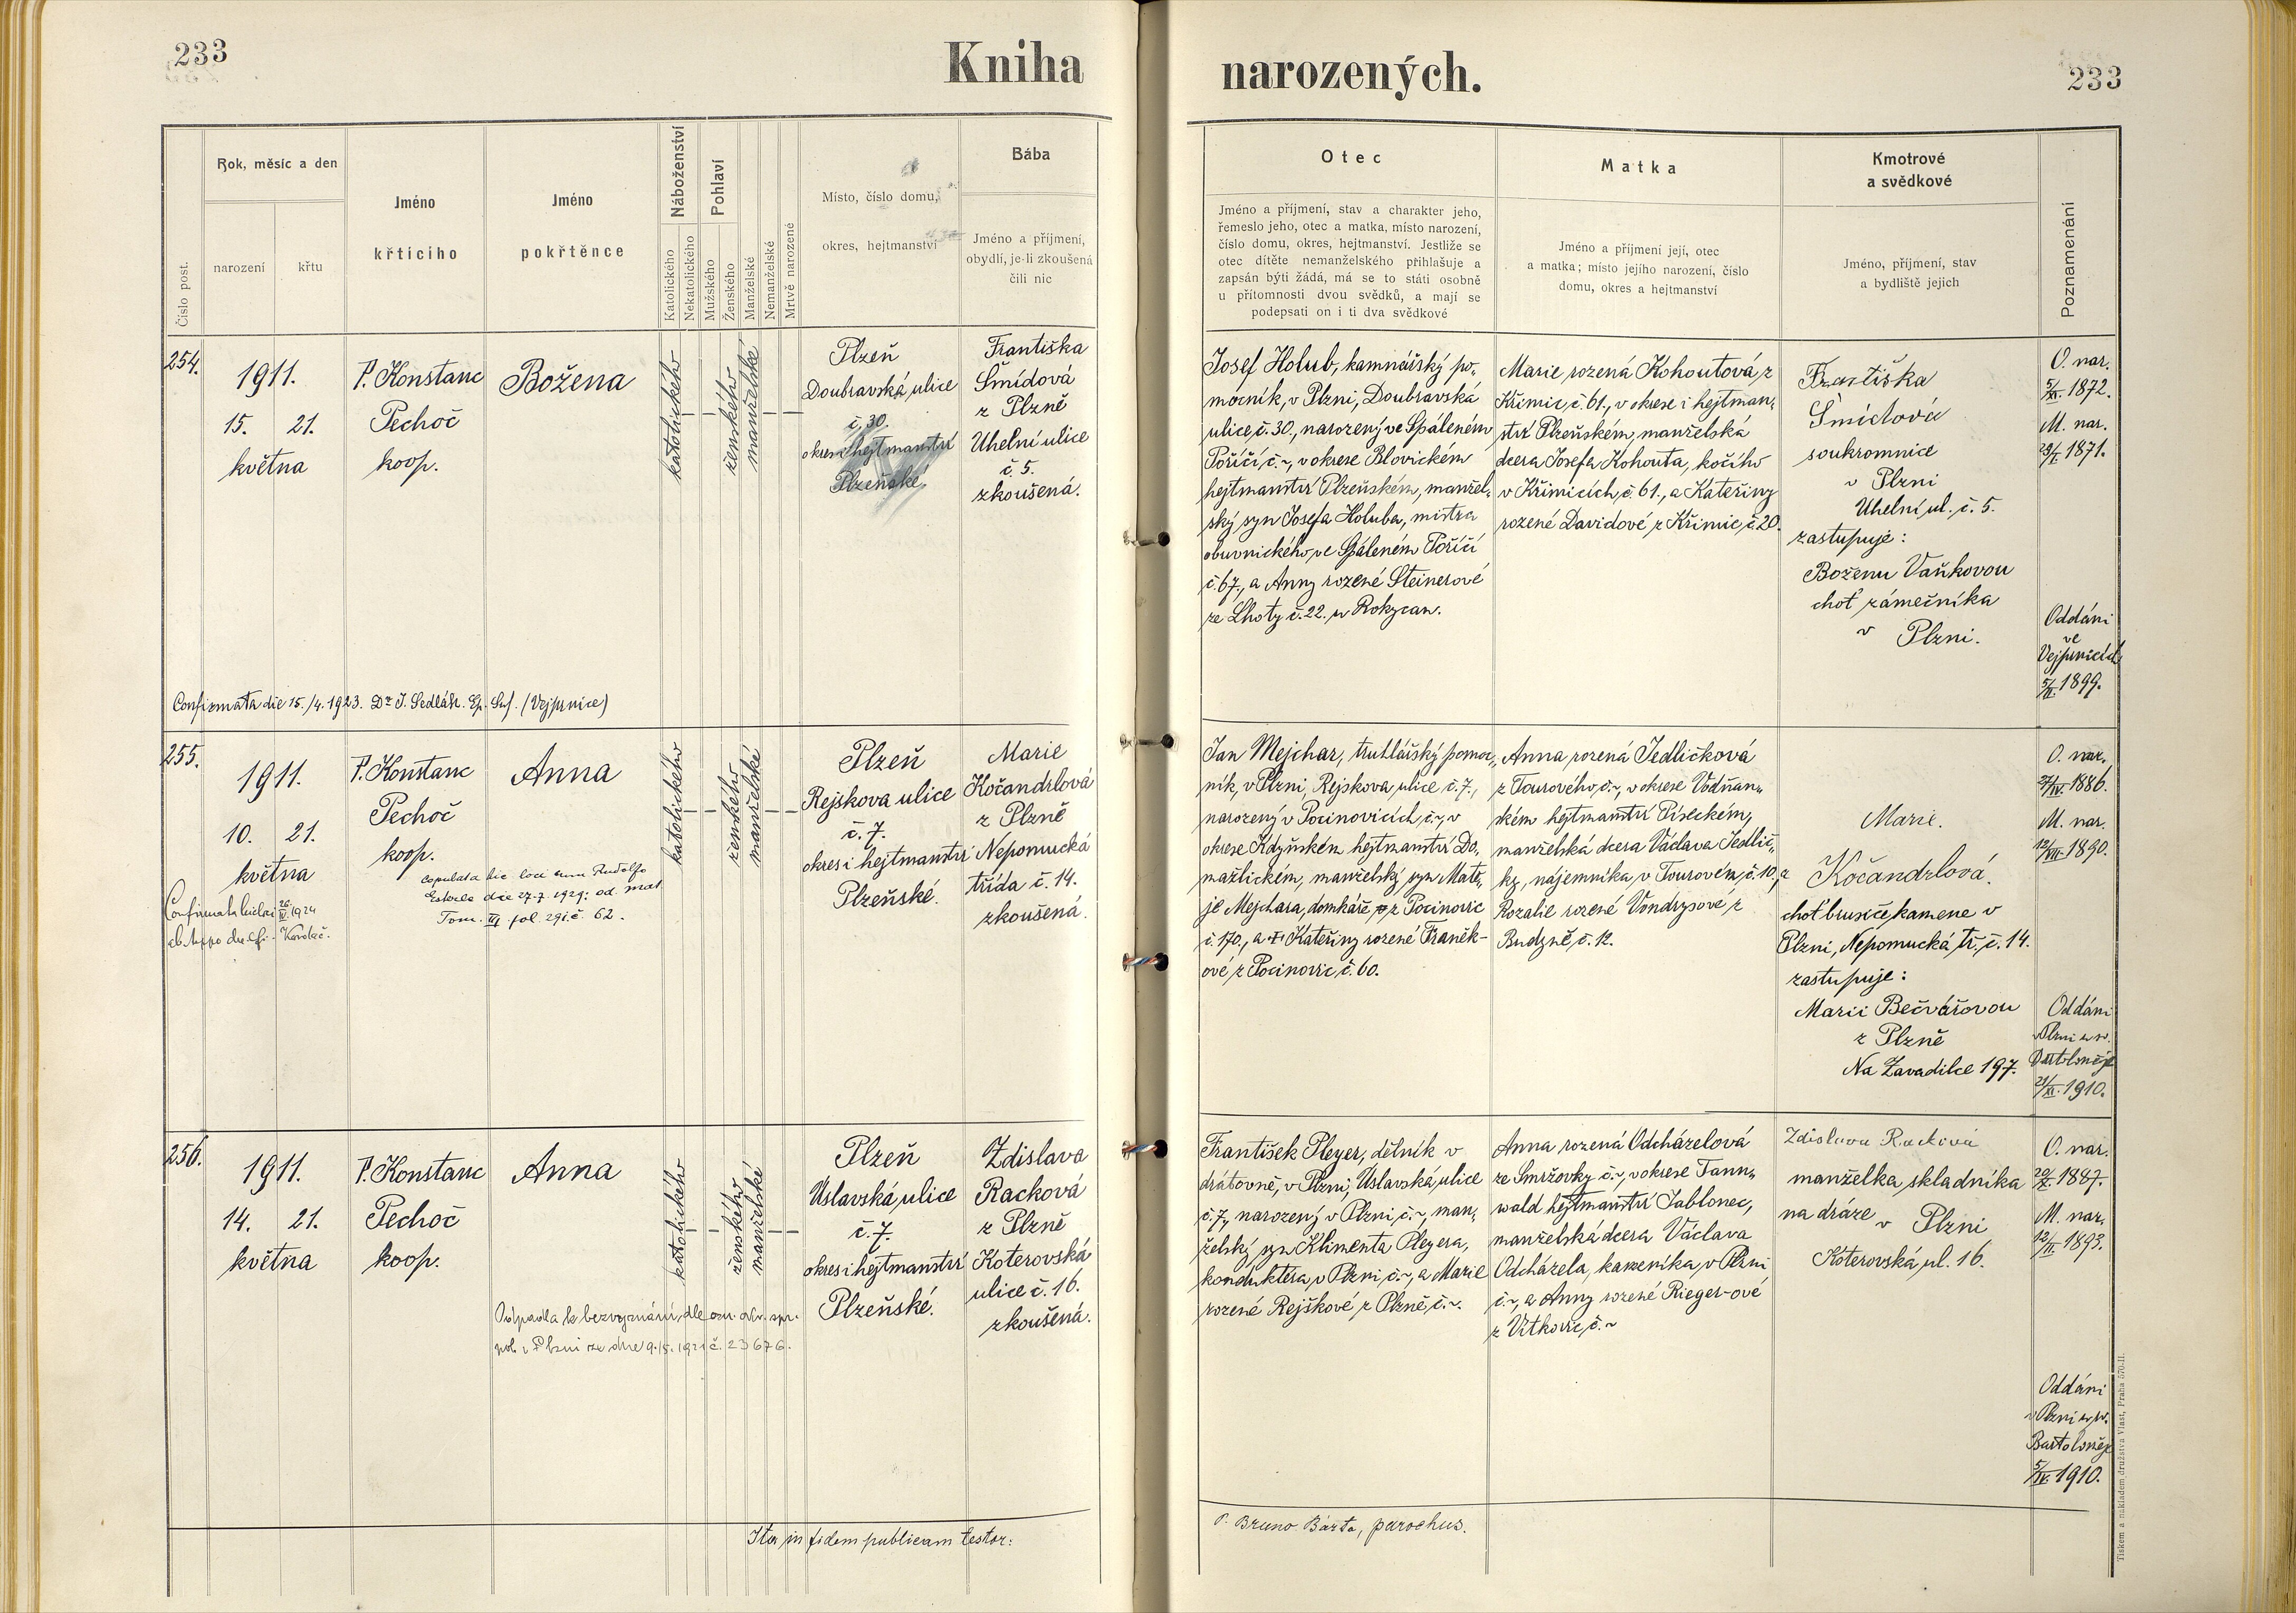 233
Kniha
narozených.
233
Číslo post.
Rok, měsíc a den
narození
křtu
Jméno
křtícího
Jméno
pokřtěnce
Náboženství
Katolického
Nekatolického
Pohlaví
Mužského
Ženského
Manželské
Nemanželské
Mrtvě narozené
Místo, číslo domu,
okres, hejtmanství
Bába
Jméno a příjmení,
obydlí, je-li zkoušená
čili nic
Otec
Jméno a příjmení, stav a charakter jeho,
řemeslo jeho, otec a matka, místo narození,
číslo domu, okres, hejtmanství. Jestliže se
otec dítěte nemanželského přihlašuje a
zapsán býti žádá, má se to státi osobně
u přítomnosti dvou svědků, a mají se
podepsati on i ti dva svědkové
Matka
Jméno a příjmení její, otec
a matka; místo jejího narození, číslo
domu, okres a hejtmanství
Kmotrové
a svědkové
Jméno, příjmení, stav
a bydliště jejich
Poznamenání
254.
1911.
15. 21.
května
P. Konstanc
Pechoč
koop.
Božena
katolického
ženského
manželské
Plzeň
Doubravská ulice
č. 30.
okres i hejtmanství
Plzeňské.
Františka
Šmídová
z Plzně
Uhelní ulice
č. 5.
zkoušená.
Confirmata die 15./4. 1923. Dr J. Sedlák. Ep. Suf. (Vejprnice)
Josef Holub, kamnářský po-
mocník, v Plzni, Doubravská
ulice, č. 30., narozený ve Spáleném
Poříčí, č. ~, v okrese Blovickém
hejtmanství Plzeňském, manžel-
ský syn Josefa Holuba, mistra
obuvnického, ve Spáleném Poříčí
č. 67., a Anny rozené Steinerové
ze Lhoty č. 22. u Rokycan.
Marie rozená Kohoutová z
Křimic, č. 61., v okrese i hejtman-
ství Plzeňském, manželská
dcera Josefa Kohouta, kočího
v Křimicích, č. 61., a Kateřiny
rozené Davidové z Křimic, č. 20.
Františka
Šmídová
soukromnice
v Plzni
Uhelní ul. č. 5.
zastupuje:
Boženu Vaňkovou
choť zámečníka
v Plzni.
O. nar.
5/XI. 1872.
M. nar.
29/I. 1871.
Oddáni
ve
Vejprnicích
5/II. 1899.
255.
1911.
10. 21.
května
P. Konstanc
Pechoč
koop.
Anna
katolického
ženského
manželské
Plzeň
Rejskova ulice
č. 7.
okres i hejtmanství
Plzeňské.
Marie
Kočandrlová
z Plzně
Nepomucká
třída č. 14.
zkoušená.
copulata hic loci cum Rudolfo
die 27.7. 1929. od. mat.
Tom. VI fol. 291. č. 62.
Confirmata 1924
Jan Mejchar, truhlářský pomoc-
ník, v Plzni, Rejskova ulice č. 7.,
narozený v Pocinovicích, č. ~, v
okrese Kdyňském hejtmanství Do-
mažlickém, manželský syn Matě-
je Mejchara, domkáře, z Pocinovic
č. 170., a Kateřiny rozené Franěk-
ové z Pocinovic, č. 60.
Anna rozená Jedličková
z Tourového, č. ~, v okrese Vodňan-
ském hejtmanství Píseckém,
manželská dcera Václava Jedlič-
ky, nájemníka v Tourovém, č. 10., a
Rozalie rozené Vondrysové z
Budyně, č. 12.
Marie.
Kočandrlová.
choť brusiče kamene v
Plzni, Nepomucká tř. č. 14.
zastupuje:
Marii Bečvářovou
z Plzně
Na Zavadilce 197.
O. nar.
27/IV. 1886.
M. nar.
12/VII. 1890.
Oddáni
v Plzni u sv.
Bartoloměje
21/XI. 1910.
256.
1911.
14. 21.
května
P. Konstanc
Pechoč
koop.
Anna
katolického
ženského
manželské
Plzeň
Úslavská ulice
č. 7.
okres i hejtmanství
Plzeňské.
Zdislava
Racková
z Plzně
Koterovská
ulice č. 16.
zkoušená.
Odpadla k bezvyznání, dle ozn. okr. spr.
pol. v Plzni ze dne 9./5. 1921 č. 23676.
František Pleyer, dělník v
drátovně, v Plzni, Úslavská ulice
č. 7., narozený v Plzni, č. ~, man-
želský syn Klimenta Pleyera,
konduktéra, v Plzni, č. ~, a Marie
rozené Rejškové z Plzně, č. ~.
Anna rozená Odcházelová
ze Smržovky č. ~, v okrese Tann-
wald hejtmanství Jablonec,
manželská dcera Václava
Odcházela, kameníka, v Plzni
č. ~, a Anny rozené Rieger-ové
z Vítkovic, č. ~
Zdislava Racková
manželka skladníka
na dráze v Plzni
Koterovská ul. 16.
O. nar.
20/X. 1887.
M. nar.
12/II. 1893.
Oddáni
v Plzni u sv.
Bartoloměje
5/IV. 1910.
Ita in fidem publicam testor:
P. Bruno Bárta, parochus.
Tiskem a nákladem družstva Vlast, Praha 570-II.